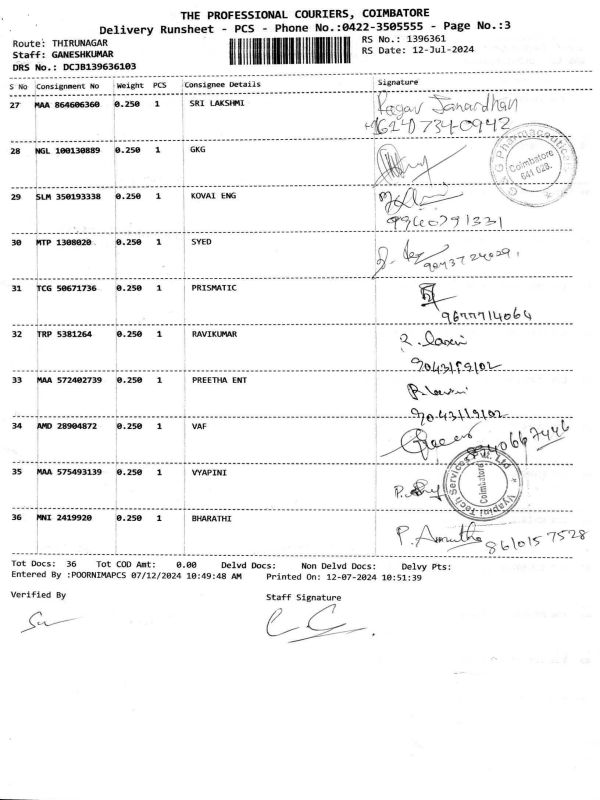 THE PROFESSIONAL COURIERS, COIMBATORE
Delivery Runsheet - PCS - Phone No.:0422-3505555 - Page No.:3
Route: THIRUNAGAR
RS No.: 1396361
Staff: GANESHKUMAR
RS Date: 12-Jul-2024
DRS No.: DCJB139636103
S No Consignment No Weight PCS Consignee Details Signature
27 MAA 864606360 0.250 1 SRI LAKSHMI Janardhan
28 NGL 100130889 0.250 1 GKG
G & G Pharmaceuticals Coimbatore 641 028.
29 SLM 350193338 0.250 1 KOVAI ENG
9940791331
30 MTP 1308020 0.250 1 SYED
31 TCG 50671736 0.250 1 PRISMATIC
9677714064
32 TRP 5381264 0.250 1 RAVIKUMAR
33 MAA 572402739 0.250 1 PREETHA ENT
34 AMD 28904872 0.250 1 VAF
35 MAA 575493139 0.250 1 VYAPINI
Vyapini Tech Services Pvt. Ltd Coimbatore
36 MNI 2419920 0.250 1 BHARATHI P. Amutha 8610157528
Tot Docs: 36 Tot COD Amt: 0.00 Delvd Docs: Non Delvd Docs: Delvy Pts:
Entered By :POORNIMAPCS 07/12/2024 10:49:48 AM Printed On: 12-07-2024 10:51:39
Verified By Staff Signature